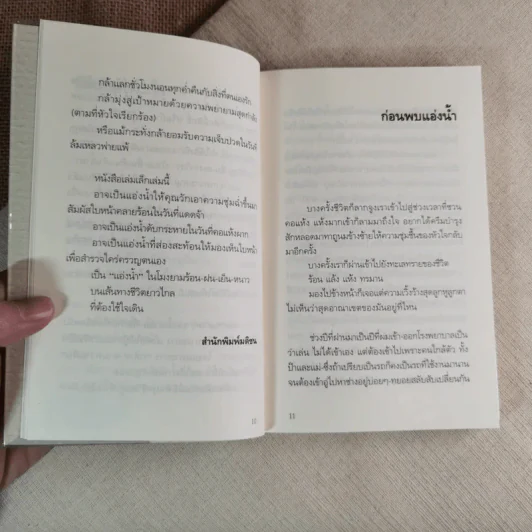 กล้าแลกชั่วโมงนอนทุกค่ำคืนกับสิ่งที่ตนเองรัก
กล้ามุ่งสู่เป้าหมายด้วยความพยายามสุดกำลัง
(ตามที่หัวใจเรียกร้อง)
หรือแม้กระทั่งกล้ายอมรับความเจ็บปวดในวันที่
ล้มเหลวพ่ายแพ้
หนังสือเล่มเล็กเล่มนี้
อาจเป็นแอ่งน้ำให้คุณวักเอาความชุ่มฉ่ำขึ้นมา
สัมผัสใบหน้าคลายร้อนในวันที่แดดจ้า
อาจเป็นแอ่งน้ำดับกระหายในวันที่คอแห้งมาก
อาจเป็นแอ่งน้ำที่ส่องสะท้อนให้มองเห็นใบหน้า
เพื่อสำรวจใคร่ครวญตนเอง
เป็น “แอ่งน้ำ” ในโมงยามร้อน-ฝน-เย็น-หนาว
บนเส้นทางชีวิตยาวไกล
ที่ต้องใช้ใจเดิน
สำนักพิมพ์มติชน
10
ก่อนพบแอ่งน้ำ
บางครั้งชีวิตก็ลากจูงเราเข้าไปสู่ช่วงเวลาที่ชวน
คอแห้ง แห้งมากเข้าก็ลามมาถึงใจ อยากได้ครีมบำรุง
สักหลอดมาทาถูนมข้างซ้ายให้ความชุ่มชื้นของหัวใจกลับ
มาอีกครั้ง
บางครั้งเราก็ผ่านเข้าไปยังทะเลทรายของชีวิต
ร้อน แล้ง แห้ง ทรมาน
มองไปข้างหน้าก็เจอแต่ความเวิ้งว้างสุดลูกหูลูกตา
ไม่เห็นว่าสุดอาณาเขตของมันอยู่ที่ไหน
ช่วงปีที่ผ่านมาเป็นปีที่ผมเข้า-ออกโรงพยาบาลเป็น
ว่าเล่น ไม่ได้เข้าเอง แต่ต้องเข้าไปเพราะคนใกล้ตัว ทั้ง
ป๊าและแม่-ซึ่งถ้าเปรียบเป็นรถก็คงเป็นรถที่ใช้งานมานาน
จนต้องเข้าอู่ไปหาช่างอยู่บ่อยๆ-ทยอยสลับสับเปลี่ยนกัน
11